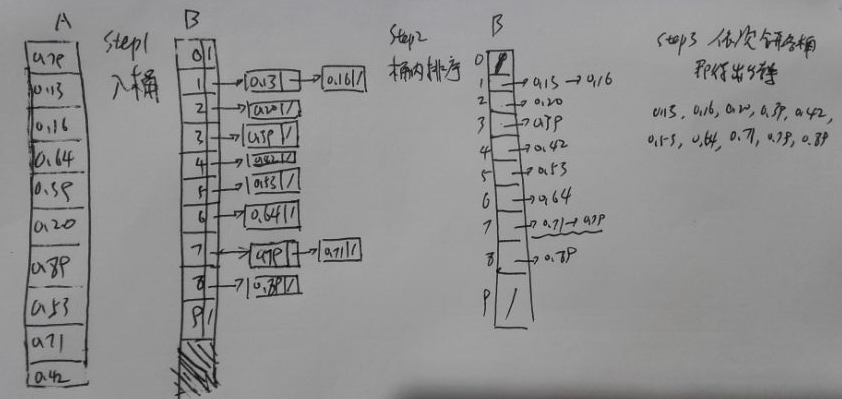 A
0.79
0.13
0.16
0.64
0.39
0.20
0.89
0.53
0.71
0.42
Step1
入桶
B
0 /
1 → 0.13 → 0.16 /
2 → 0.20 /
3 → 0.39 /
4 → 0.42 /
5 → 0.53 /
6 → 0.64 /
7 → 0.79 → 0.71 /
8 → 0.89 /
9 /
Step2
桶内排序
B
0 /
1 → 0.13 → 0.16
2 → 0.20
3 → 0.39
4 → 0.42
5 → 0.53
6 → 0.64
7 → 0.71 → 0.79
8 → 0.89
9 /
Step3 依次合并各桶
即得出
0.13, 0.16, 0.20, 0.39, 0.42,
0.53, 0.64, 0.71, 0.79, 0.89